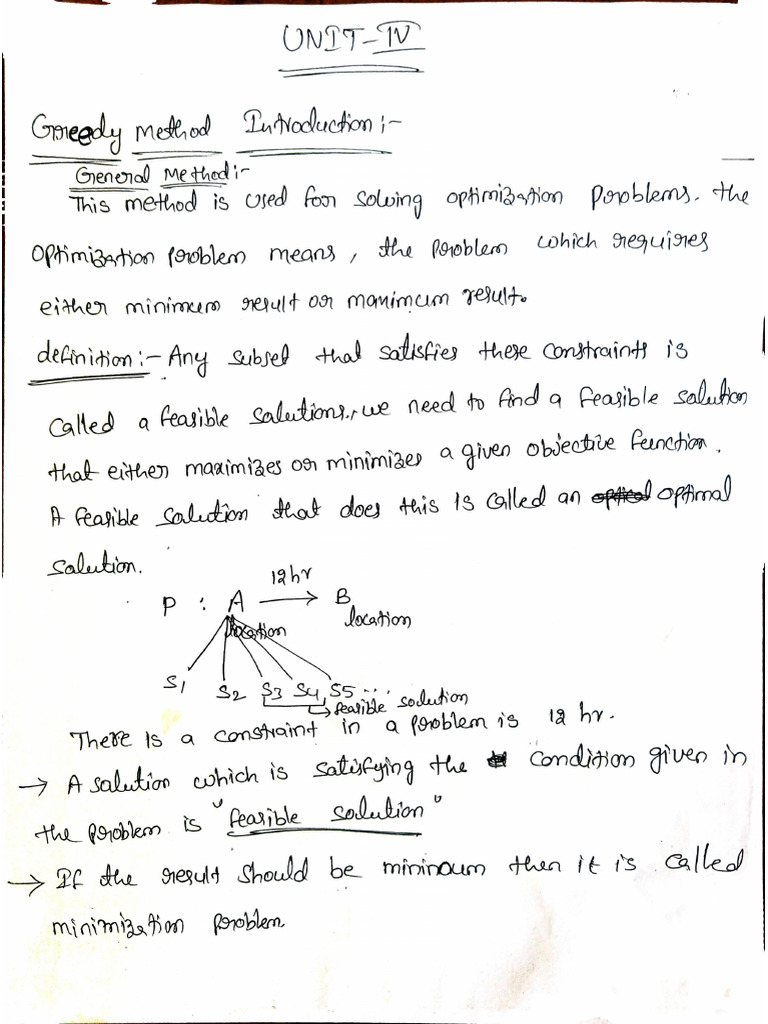 UNIT-IV
Greedy method Introduction:-
General Method:-
This method is used for solving optimization problems. the
optimization problem means, the problem which requires
either minimum result or maximum result.
definition:- Any subset that satisfies these constraints is
called a feasible solutions., we need to find a feasible solution
that either maximizes or minimizes a given objective function.
A feasible solution that does this is called an optical optimal
solution.
12hr
P : A → B
location location
S1 S2 S3 S4 S5 ...
feasible solution
There is a constraint in a problem is 12 hr.
→ A solution which is satisfying the condition given in
the problem is "feasible solution"
→ If the result should be minimum then it is called
minimization problem.